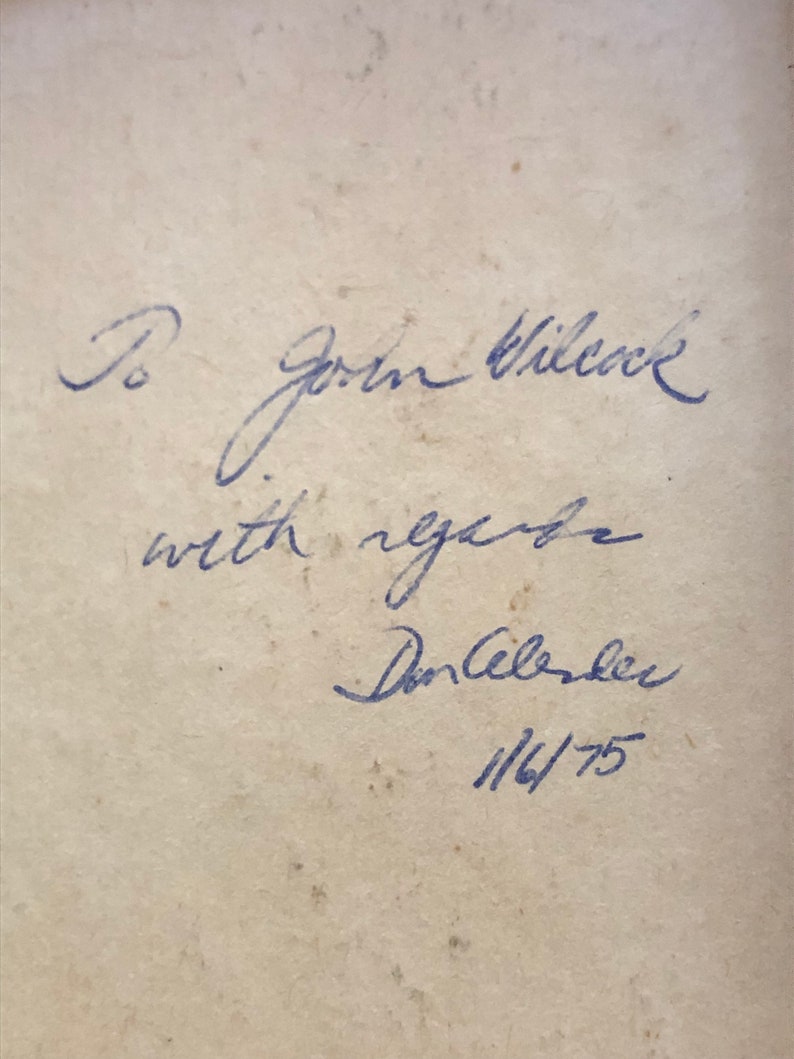 To John Wilcock
with regards
Don Celender
1/6/75